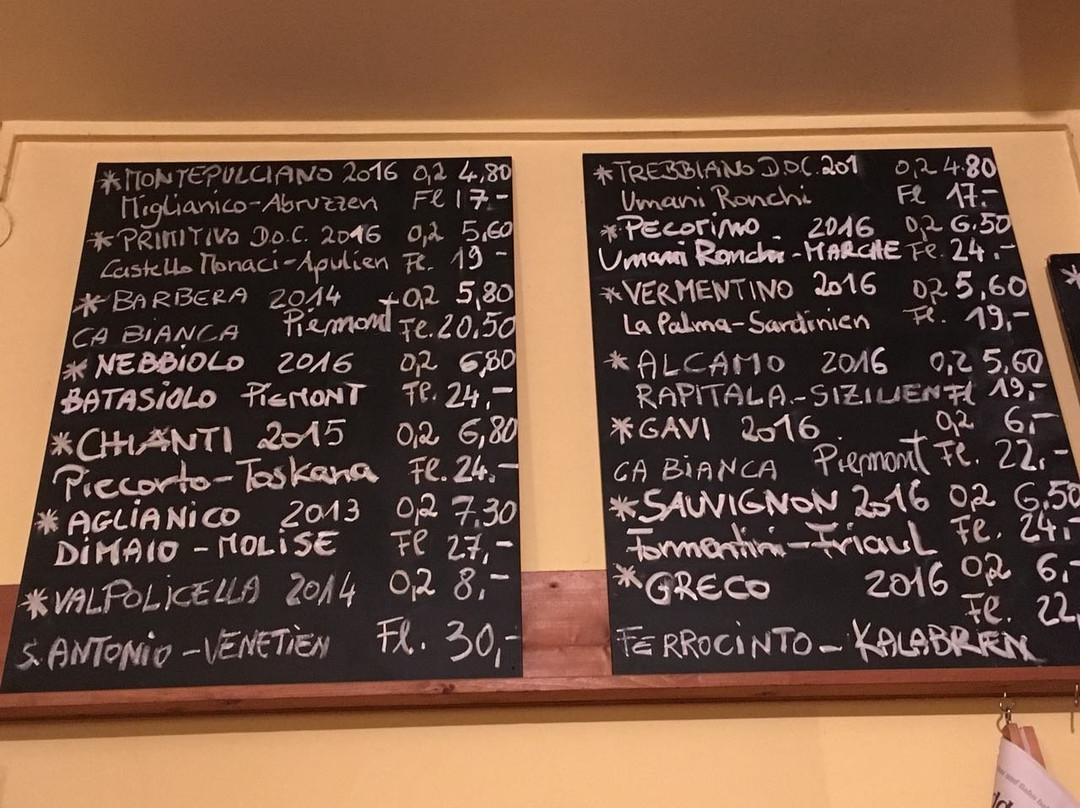 *MONTEPULCIANO 2016 0,2 4,80
Miglianico-Abruzzen Fl 17.-
*PRIMITIVO D.O.C. 2016 0,2 5,60
Castello Monaci-Apulien Fl. 19-
*BARBERA 2014 0,2 5,80
CA BIANCA Piemont Fl. 20,50
*NEBBIOLO 2016 0,2 6,80
BATASIOLO PIEMONT Fl. 24,-
*CHIANTI 2015 0,2 6,80
Piccorto-Toskana Fl. 24.-
*AGLIANICO 2013 0,2 7,30
DIMAIO-MOLISE Fl 27,-
*VALPOLICELLA 2014 0,2 8,-
S. ANTONIO-VENETIEN Fl. 30,-
*TREBBIANO D.O.C. 201 0,2 4.80
Umani Ronchi Fl 17.-
*PECORINO 2016 0,2 6.50
Umani Ronchi-MARCHE Fl. 24.-
*VERMENTINO 2016 0,2 5,60
La Palma-Sardinien Fl. 19,-
*ALCAMO 2016 0,2 5,60
RAPITALA.-SIZILIEN Fl 19,-
*GAVI 2016 0,2 6,-
CA BIANCA Piemont Fl. 22,-
*SAUVIGNON 2016 0,2 6,50
Formentini-Friaul Fl. 24,-
*GRECO 2016 0,2 6,-
Fl. 22,
FERROCINTO-KALABREN